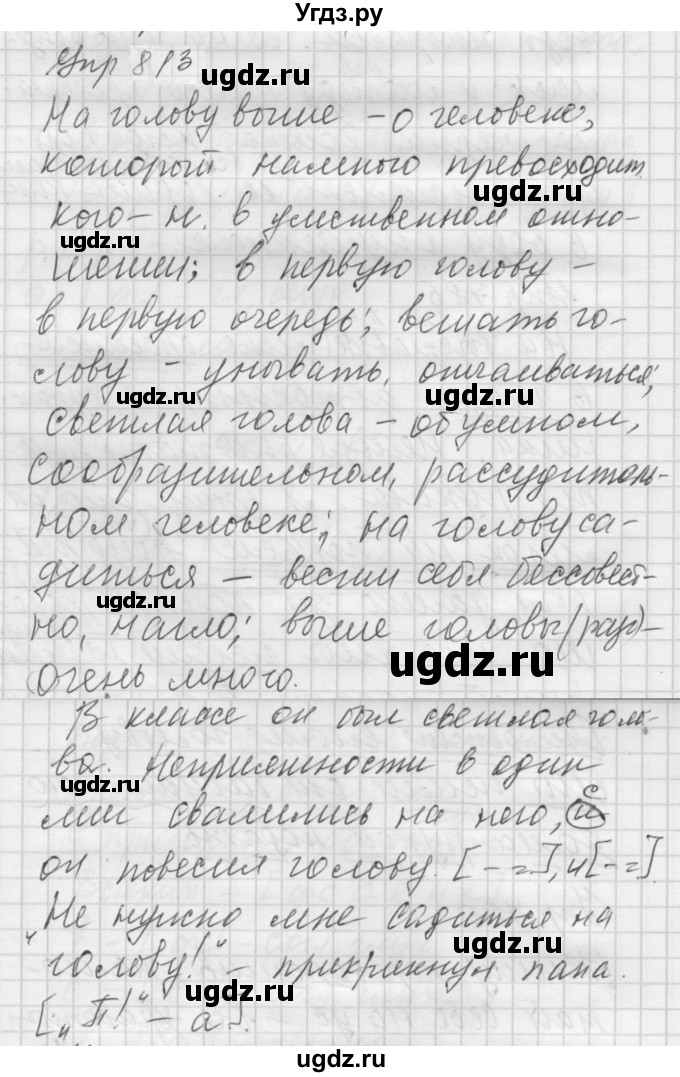 Угдз.ру
Упр 813
ugdz.ru
На голову выше – о человеке,
который намного превосходит
кого-н. в умственном отно-
ugdz.ru
шении; в первую голову –
в первую очередь; вешать го-
лову – унывать, отчаиваться;
ugdz.ru ugdz.ru
светлая голова – об умном,
сообразительном, рассудитель-
ном человеке; на голову са-
диться – вести себя бессовест-
ugdz.ru
но, нагло; выше головы (разг) –
ugdz.ru
очень много.
В классе он был светлая голо-
ва. Неприятности в один
ugdz.ru
миг свалились на него, и
с
он повесил голову. [– =], и [– =].
"Не нужно мне садиться на
ugdz.ru
голову!" – прикрикнул папа.
ugdz.ru
["П!" – а].
ugdz.ru